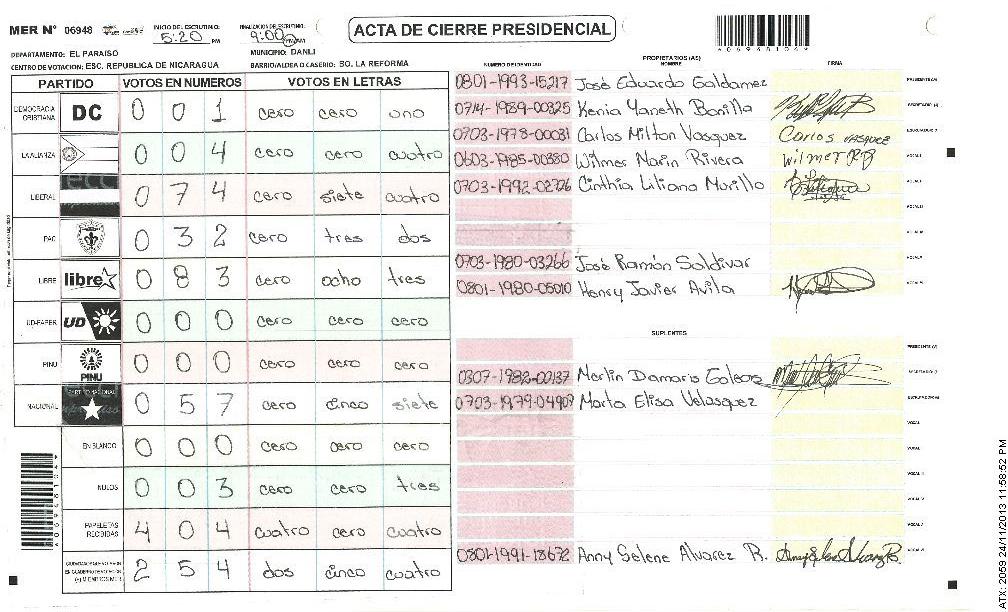 MER N° 06948
INICIO DE ESCRUTINIO: 5:20 PM
FINALIZACION DE ESCRUTINIO: 9:00 PM
ACTA DE CIERRE PRESIDENCIAL
DEPARTAMENTO: EL PARAÍSO
MUNICIPIO: DANLI
CENTRO DE VOTACION: ESC. REPUBLICA DE NICARAGUA
BARRIO/ALDEA O CASERIO: SO. LA REFORMA
PARTIDO VOTOS EN NUMEROS VOTOS EN LETRAS
DEMOCRACIA CRISTIANA DC 0 0 1 cero cero uno
LA ALIANZA 0 0 4 cero cero cuatro
LIBERAL 0 7 4 cero siete cuatro
PAC 0 3 2 cero tres dos
LIBRE libre 0 8 3 cero ocho tres
UD-FAPER UD 0 0 0 cero cero cero
PINU PINU 0 0 0 cero cero cero
NACIONAL 0 5 7 cero cinco siete
EN BLANCO 0 0 0 cero cero cero
NULOS 0 0 3 cero cero tres
PAPELETAS RECIBIDAS 4 0 4 cuatro cero cuatro
2 5 4 dos cinco cuatro
PROPIETARIOS (AS)
NUMERO DE IDENTIDAD NOMBRE FIRMA
0801-1993-15217 José Eduardo Galdamez
0714-1989-00325 Kenia Yaneth Bonilla
0703-1978-00031 Carlos Milton Vasquez Carlos VASQUEZ
0603-1985-00380 Wilmer Narin Rivera
0703-1992-02776 Cinthia Liliana Murillo
0703-1980-03266 José Ramón Saldivar
0801-1980-05010 Henry Javier Avila
SUPLENTES
0307-1982-00137 Merlin Damaris Galeas
0703-1979-04909 Marta Elisa Velasquez
0801-1991-18672 Anny Selene Alvarez R.
ATX: 2059 24/11/2013 11:58:52 PM